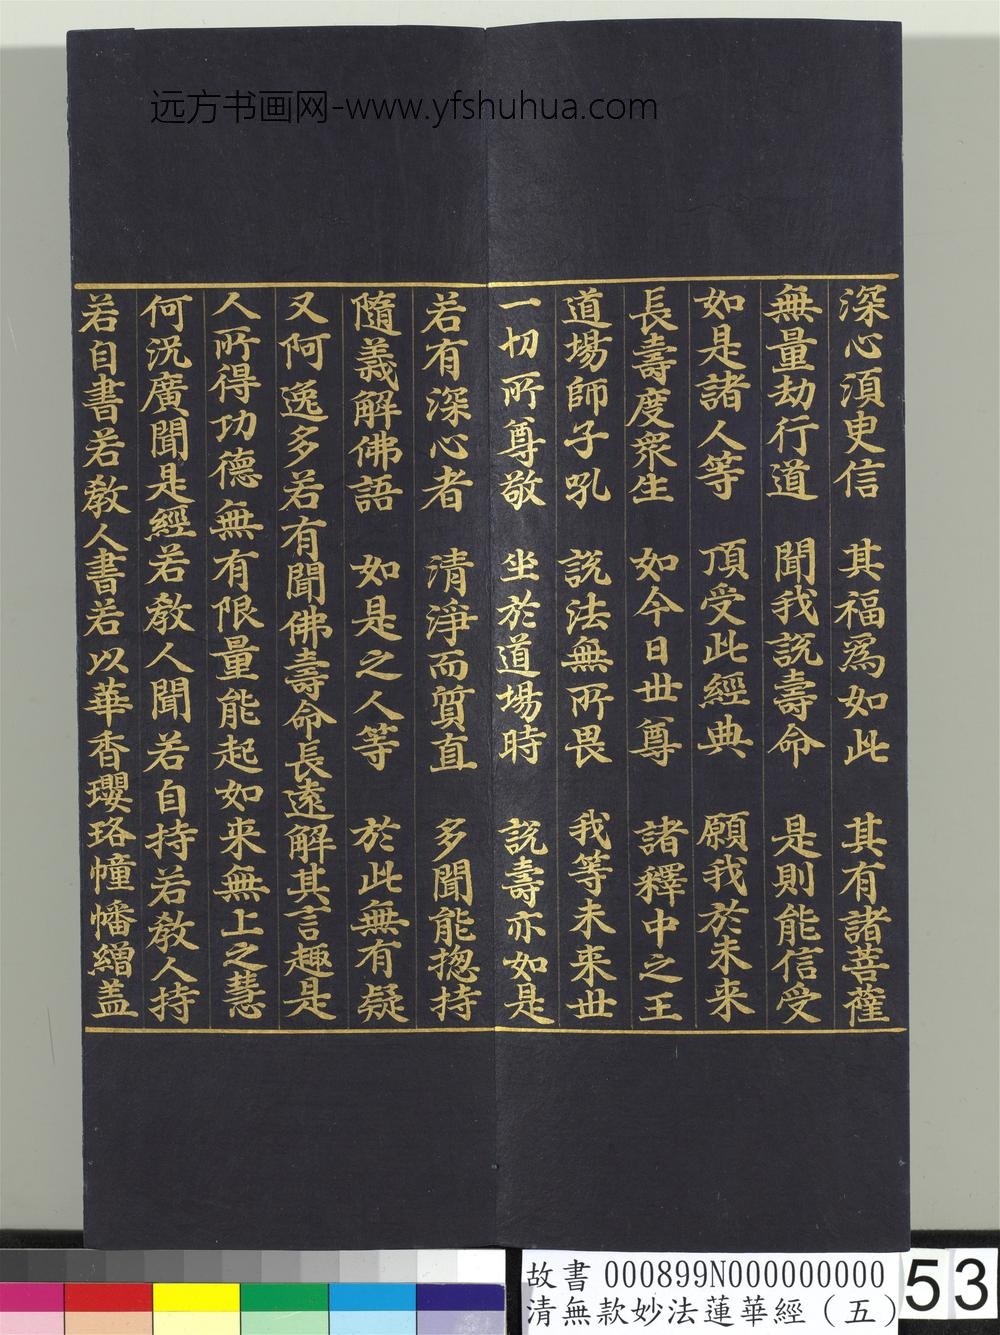 远方书画网-www.yfshuhua.com
深心須臾信　其福爲如此　其有諸菩薩
無量劫行道　聞我說壽命　是則能信受
如是諸人等　頂受此經典　願我於未来
長壽度衆生　如今日世尊　諸釋中之王
道場師子吼　說法無所畏　我等未来世
一切所尊敬　坐於道場時　說壽亦如是
若有深心者　清淨而質直　多聞能揔持
隨義解佛語　如是之人等　於此無有疑
又阿逸多若有聞佛壽命長遠解其言趣是
人所得功德無有限量能起如来無上之慧
何况廣聞是經若教人聞若自持若教人持
若自書若教人書若以華香瓔珞幢幡繒盖
故書 000899N000000000
清無款妙法蓮華經（五）
53